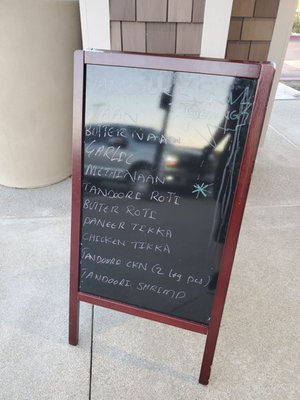 NAAN
BUTTER NAAN
GARLIC
METHI NAAN
TANDOORI ROTI
BUTTER ROTI
PANEER TIKKA
CHICKEN TIKKA
TANDOORI CKN (2 Leg pcs)
TANDOORI SHRIMP